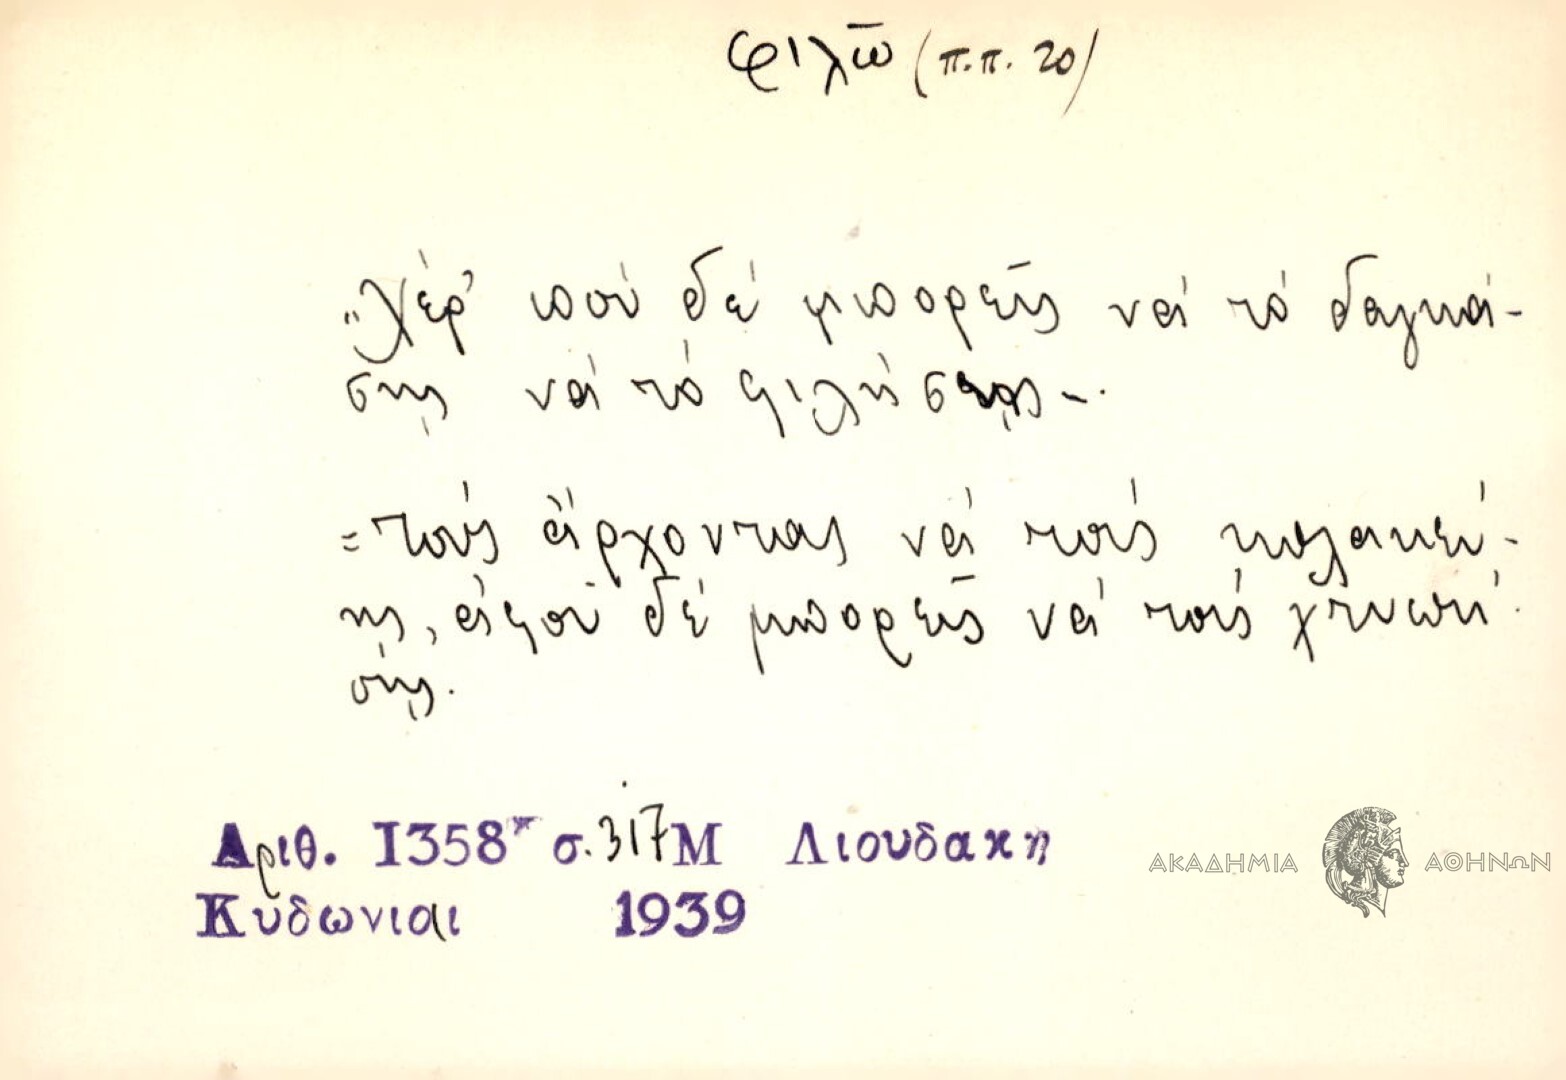 φιλῶ (π.π. 20)
"Χέρ' ποὺ δὲ μπορεῖς νὰ τὸ δαγκά-
σῃς νὰ τὸ φιλήσῃς -.
= Τοὺς ἄρχοντας νὰ τοὺς κολακεύ-
ῃς, ἀφοῦ δὲ μπορεῖς νὰ τοὺς χτυπή-
σῃς.
Αριθ. 1358 σ. 317 Μ Λιουδακη
Κυδωνιαι 1939
ΑΚΑΔΗΜΙΑ ΑΘΗΝΩΝ